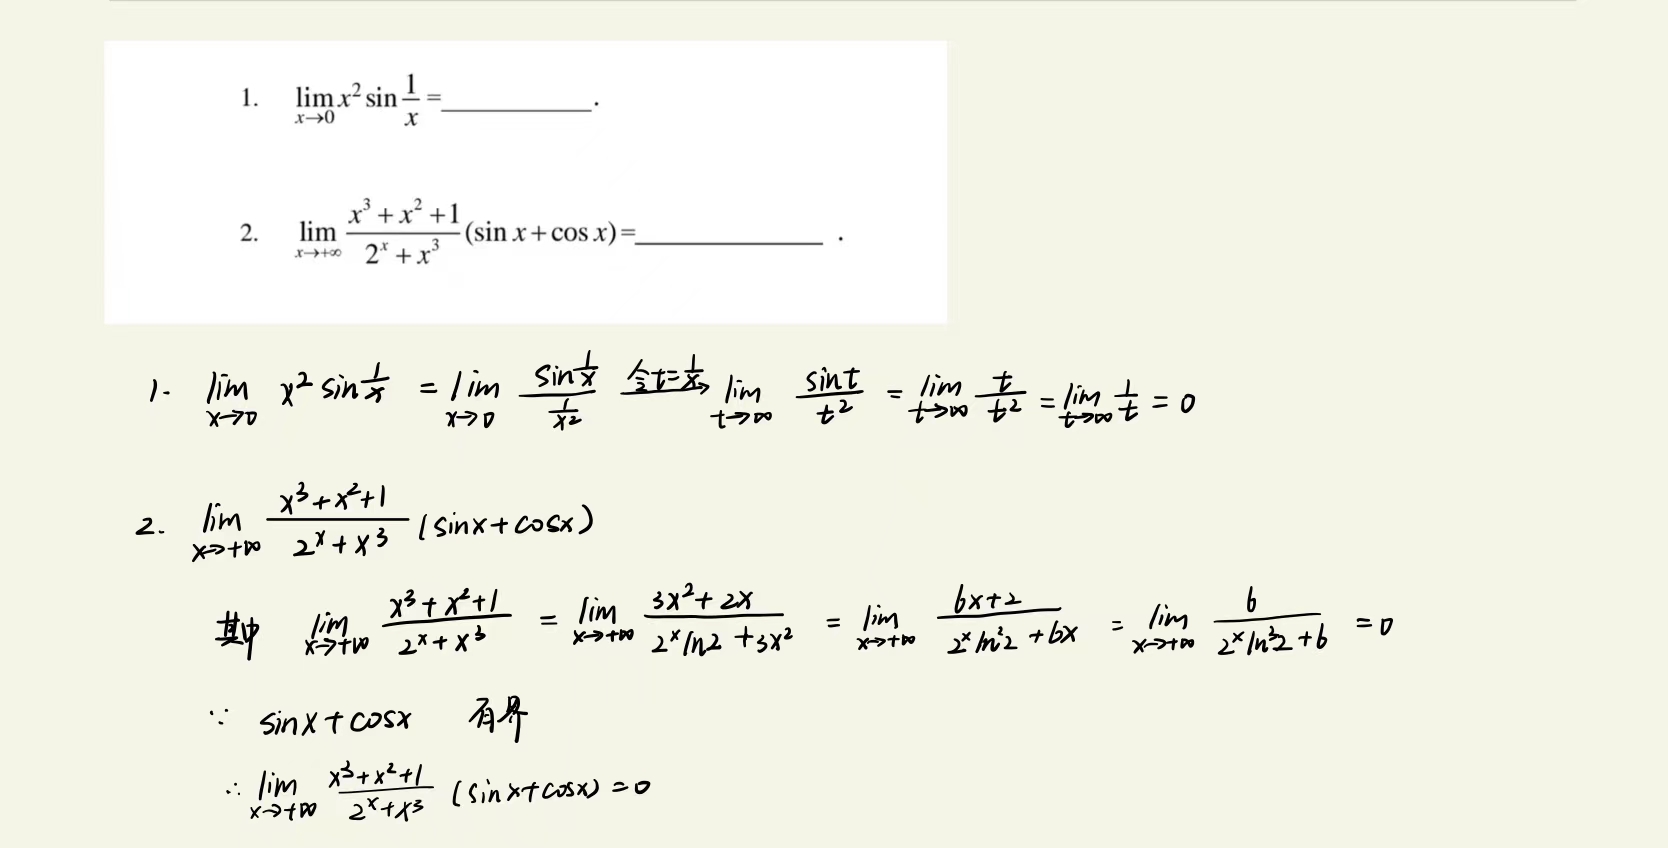 1. lim x→0 x² sin 1/x = ________.
2. lim x→+∞ (x³+x²+1)/(2ˣ+x³) (sin x+cos x)=________ .
1. lim x→0 x² sin 1/x = lim x→0 (sin 1/x)/(1/x²) 令t=1/x lim t→∞ sint/t² = lim t→∞ t/t² = lim t→∞ 1/t = 0
2. lim x→+∞ (x³+x²+1)/(2ˣ+x³) (sinx+cosx)
其中 lim x→+∞ (x³+x²+1)/(2ˣ+x³) = lim x→+∞ (3x²+2x)/(2ˣln2+3x²) = lim x→+∞ (6x+2)/(2ˣln²2+6x) = lim x→+∞ 6/(2ˣln³2+6) = 0
∵ sinx+cosx 有界
∴ lim x→+∞ (x³+x²+1)/(2ˣ+x³) (sinx+cosx)=0